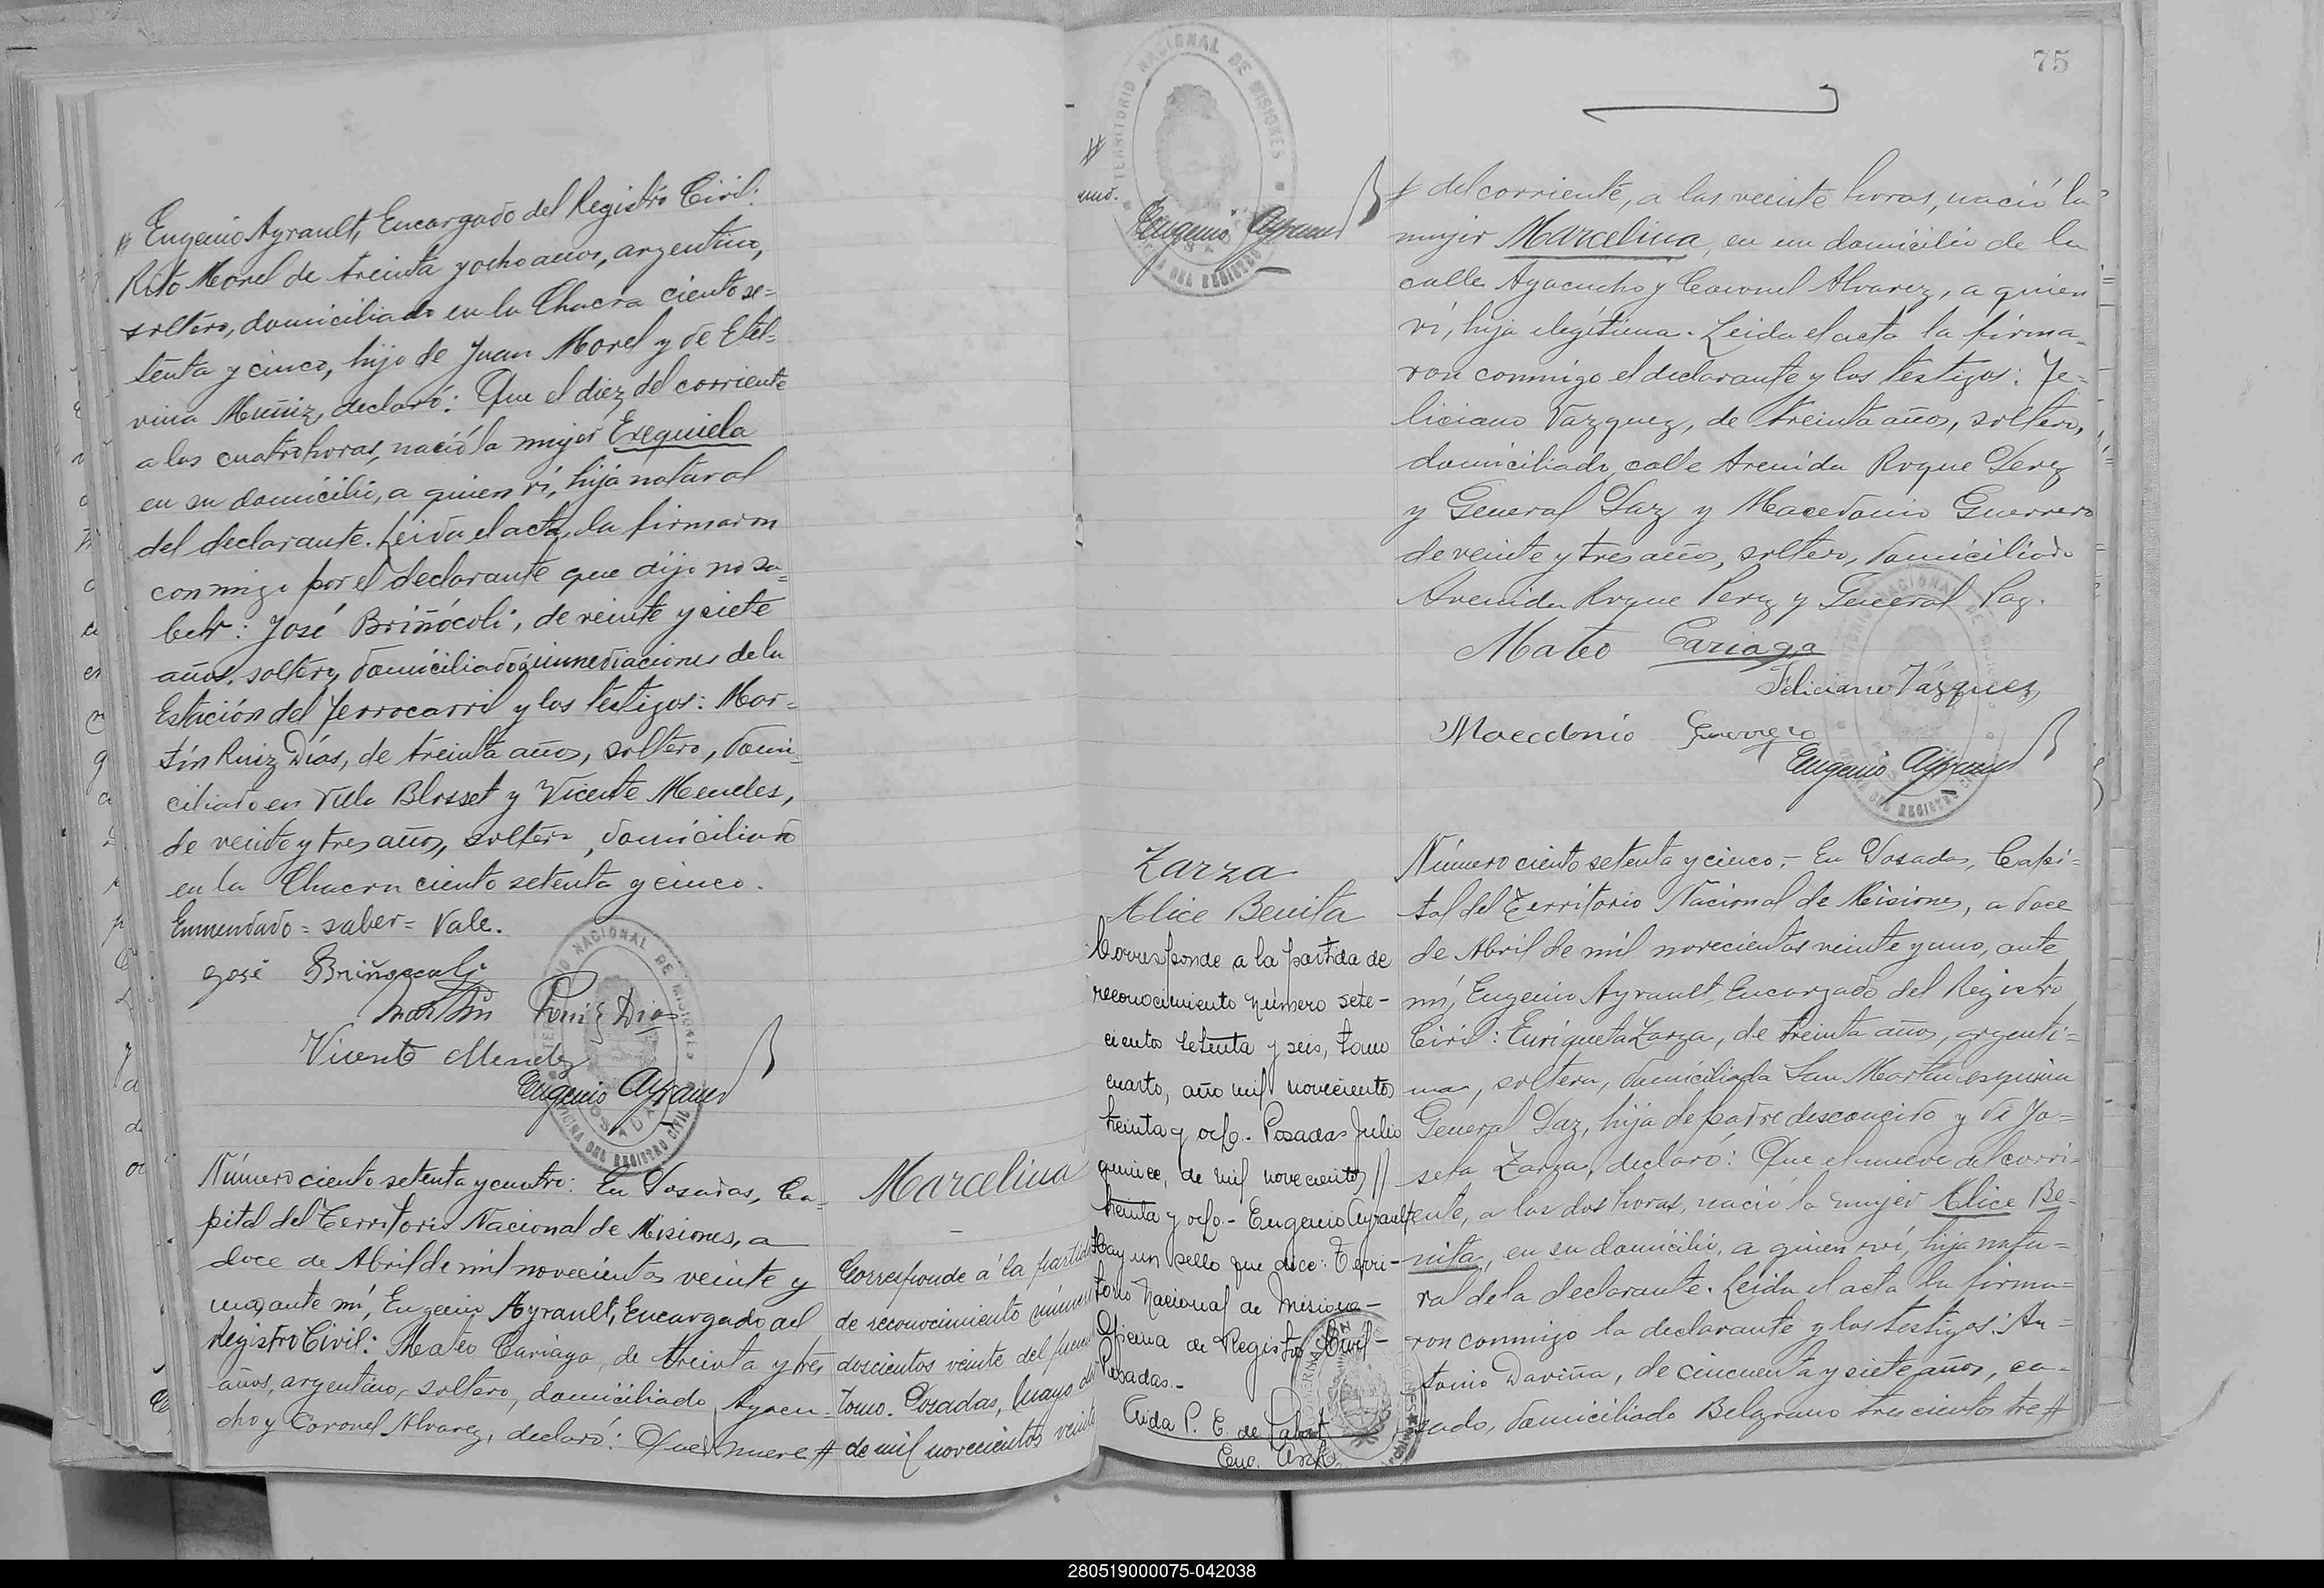 # Eugenio Ayrault, Encargado del Registro Civil:
Rito Morel de treinta y ocho años, argentino,
soltero, domiciliado en la Chacra ciento se=
tenta y cinco, hijo de Juan Morel y de Etel=
vina Muñiz, declaró: Que el diez del corriente
a las cuatro horas, nació la mujer Exequiela
en su domicilio, a quien ví, hija natural
del declarante. Leida el acta, la firmaron
conmigo por el declarante que dijo no sa=
ber: José Briñócoli, de veinte y siete
años, soltero, domiciliado inmediaciones de la
Estación del Ferrocarril y los testigos: Mar=
tín Ruiz Días, de treinta años, soltero, domi=
ciliado en Villa Blosset y Vicente Mendes,
de veinte y tres años, soltero, domiciliado
en la Chacra ciento setenta y cinco.
Enmendado = saber = Vale.
José Briñocoli
Martin Ruiz Dias
Vicente Mendez
Eugenio Ayrault
TERRITORIO NACIONAL DE MISIONES
OFICINA DEL REGISTRO CIVIL
POSADAS
Número ciento setenta y cuatro: En Posadas, Ca=
pital del Territorio Nacional de Misiones, a
doce de Abril de mil novecientos veinte y
uno, ante mí, Eugenio Ayrault, Encargado del
Registro Civil: Mateo Cariaga, de treinta y tres
años, argentino, soltero, domiciliado Ayacu=
cho y Coronel Alvarez, declaró: Que el nueve #
Marcelina
Corresponde á la partida
de reconocimiento número
doscientos veinte del
tomo. Posadas, Mayo
de mil novecientos veinte
75
#
uno.
Eugenio Ayrault
TERRITORIO NACIONAL DE MISIONES
OFICINA DEL REGISTRO
# del corriente, a las veinte horas, nació la
mujer Marcelina, en un domicilio de la
calle Ayacucho y Coronel Alvarez, a quien
ví, hija ilegítima. Leida el acta la firma=
ron conmigo el declarante y los testigos: Fe=
liciano Vazquez, de treinta años, soltero,
domiciliado calle Avenida Roque Perez
y General Paz y Macedonio Guerrero
de veinte y tres años, soltero, domiciliado
Avenida Roque Perez y General Paz.
Mateo Cariaga
Feliciano Vázquez
Macedonio Guerrero
Eugenio Ayrault
Zarza
Alice Benita
Corresponde a la partida de
reconocimiento número sete-
cientos setenta y seis, tomo
cuarto, año mil novecientos
treinta y ocho. Posadas Julio
quince, de mil novecientos //
treinta y ocho.- Eugenio Ayrault
Hay un sello que dice: Terri-
torio Nacional de Misiones-
Oficina de Registro Civil-
Posadas.-
Aida P. E. de
Número ciento setenta y cinco.- En Posadas, Capi=
tal del Territorio Nacional de Misiones, a doce
de Abril de mil novecientos veinte y uno, ante
mí, Eugenio Ayrault, Encargado del Registro
Civil: Enriqueta Zarza, de treinta años, argenti=
na, soltera, domiciliada San Martin esquina
General Paz, hija de padre desconocido y de Jo=
sefa Zarza, declaró: Que el nueve del corri=
ente, a las dos horas, nació la mujer Alice Be=
nita, en su domicilio, a quien ví, hija natu=
ral de la declarante. Leida el acta la firma=
ron conmigo la declarante y los testigos: An=
tonio Daviña, de cincuenta y siete años, ca=
sado, domiciliado Belgrano trescientos tre #
280519000075-042038